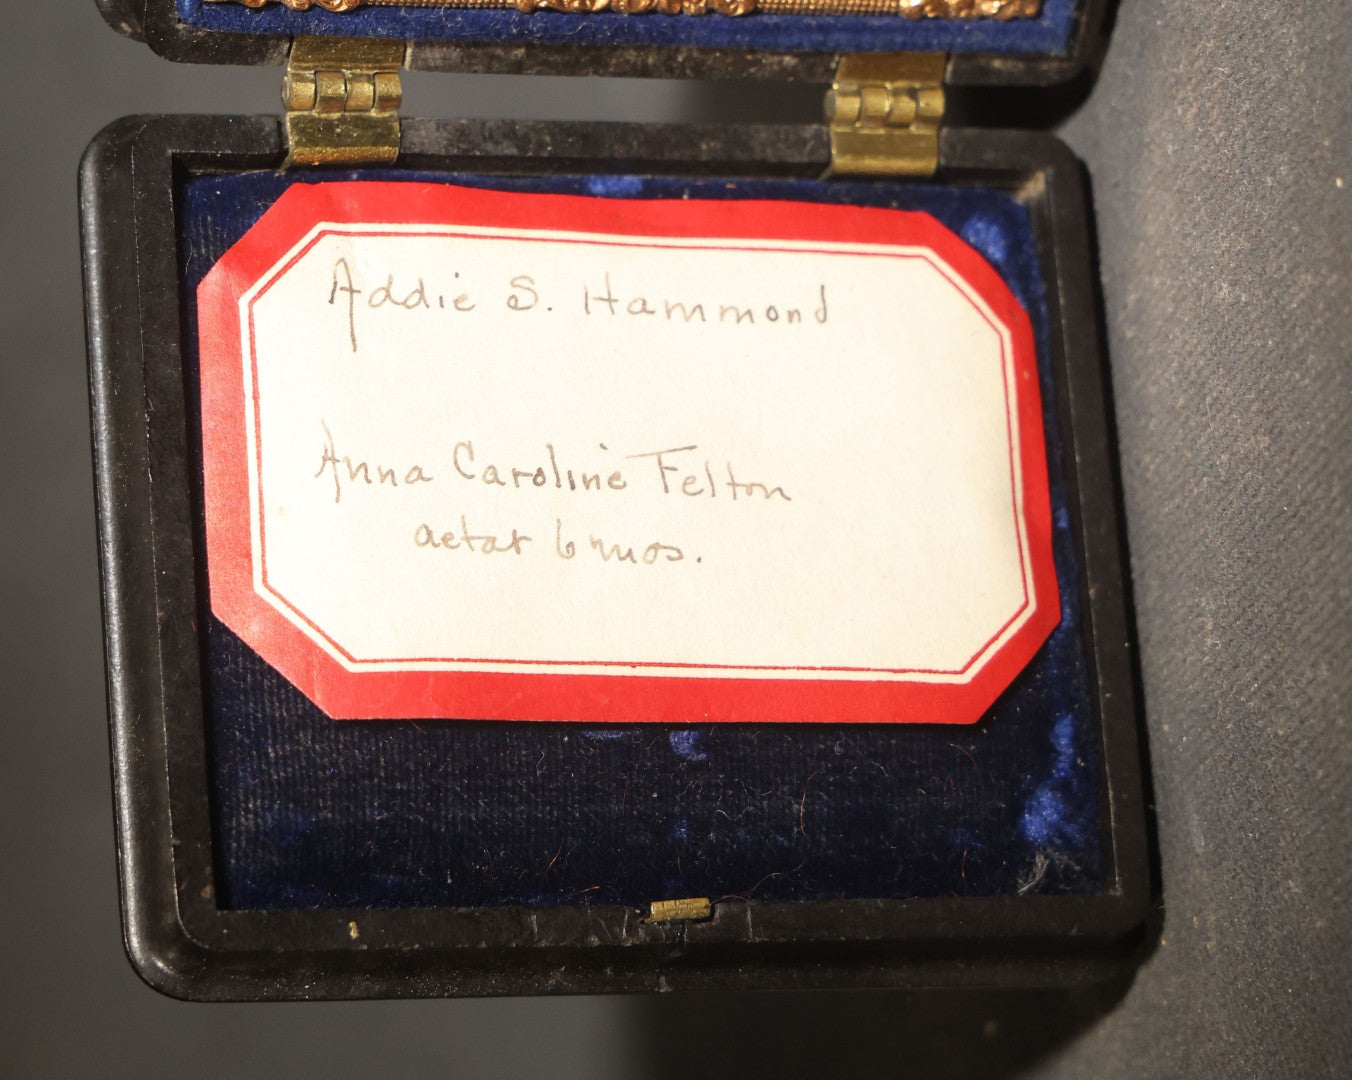 Addie S. Hammond
Anna Caroline Felton
aetat 6 mos.